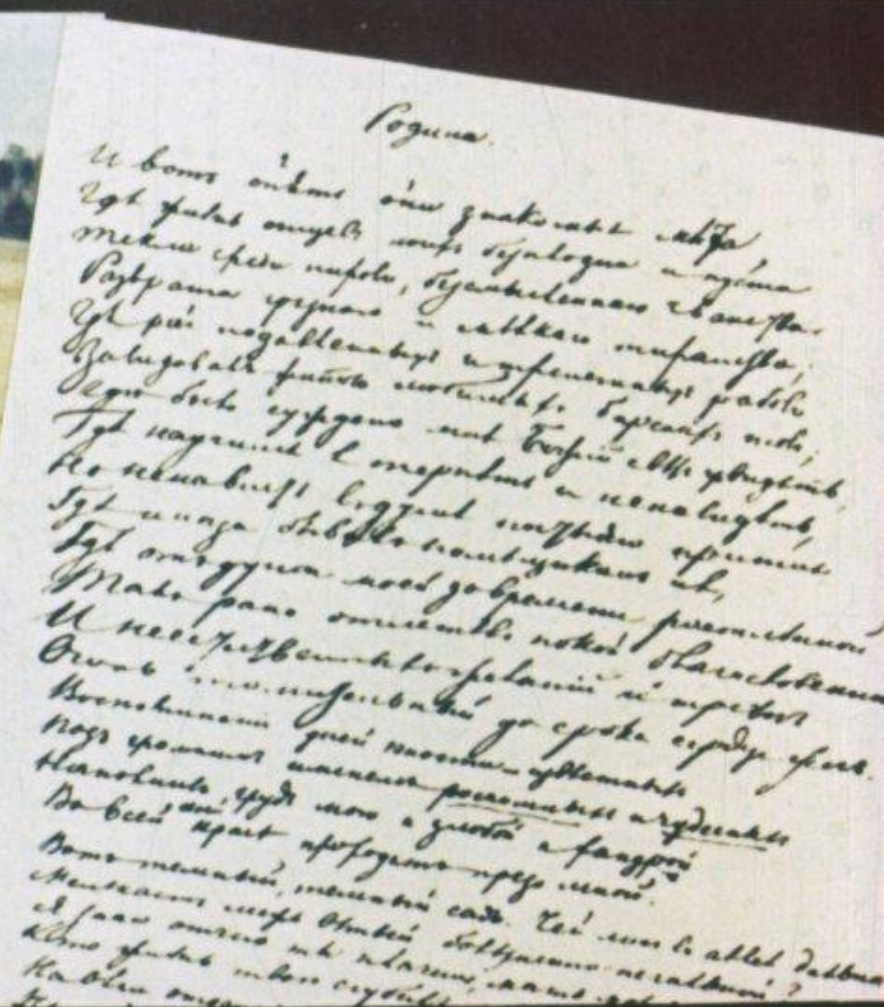 Родина.
И вотъ опять они знакомыя мѣста,
Гдѣ жизнь отцовъ моихъ безплодна и пуста
Текла среди пировъ, безмысленнаго чванства
Разврата грязнаго и мѣлкаго тиранства;
Гдѣ рой подавленныхъ и трепетныхъ рабовъ
Завидовалъ житью барскихъ псовъ;
Гдѣ было суждено мнѣ Божій свѣтъ увидѣть,
Гдѣ научился я терпѣть и ненавидѣть,
Но ненависть въ душѣ постыдно притая
Гдѣ иногда бывалъ помѣщикомъ и я,
Гдѣ отъ души моей довременно растлѣнной
Такъ рано отлетѣлъ покой благословенный
И желаній и тревогъ
Огонь томительный до срока сердце жегъ.
Воспоминанія дней юности извѣстныхъ
Подъ громкимъ именемъ роскошныхъ и чудесныхъ
Наполнивъ грудь мою и злобой и хандрой
Во всей красѣ проходятъ предо мной.
Вотъ темный, темный садъ. Чей ликъ въ аллеѣ дальной
Мелькаетъ межъ вѣтвей болѣзненно-печальной?
Я знаю отчего ты плачешь, мать
Кто жизнь твою сгубилъ